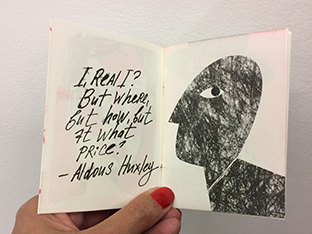 I, REAL I?
But where,
But how, but
At what
PRICE?
- Aldous Huxley